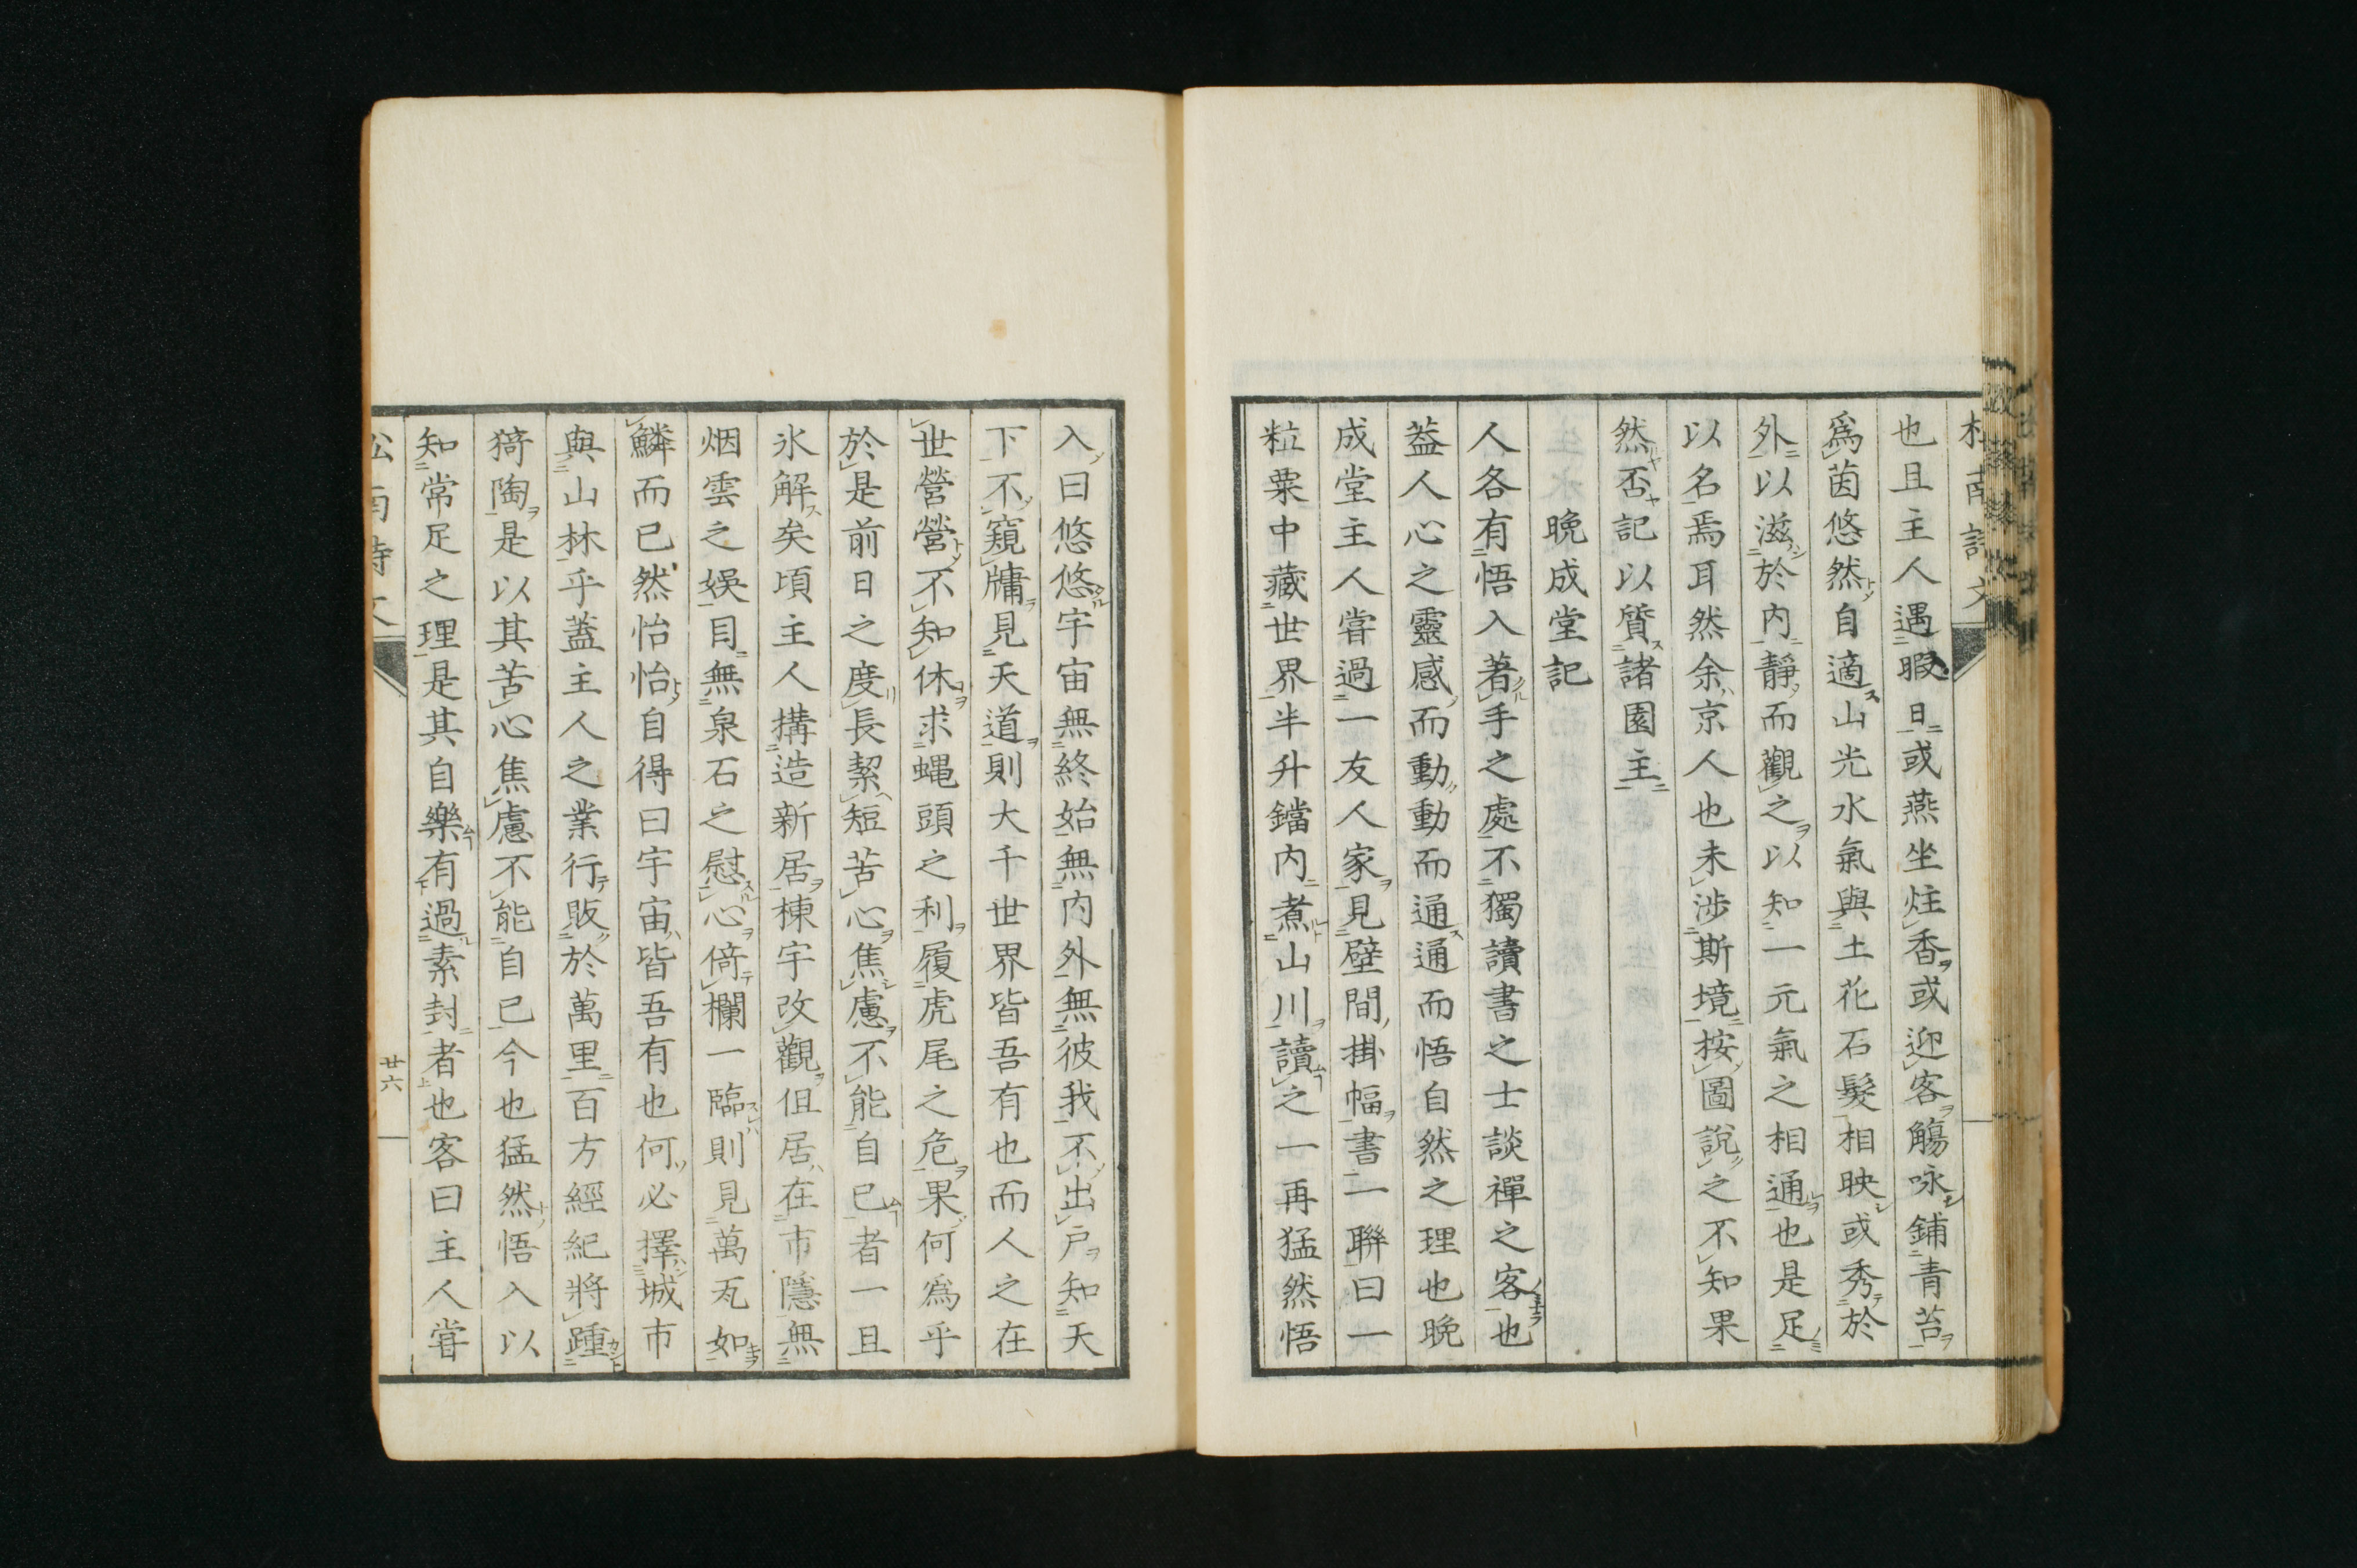 也且主人遇暇日或燕坐炷香或迎客觴咏鋪青苔
爲茵悠然自適山光水氣與土花石髮相映或秀於
外以滋於內靜而觀之以知一元氣之相通也是足
以名焉耳然余京人也未涉斯境按圖說之不知果
然否記以質諸園主
晩成堂記
人各有悟入著手之處不獨讀書之士談禪之客也
葢人心之靈感而動動而通通而悟自然之理也晩
成堂主人甞過一友人家見壁間掛幅書一聯曰一
粒粟中藏世界半升鐺內煮山川讀之一再猛然悟
入曰悠悠宇宙無終始無内外無彼我不出戶知天
下不窺牗見天道則大千世界皆吾有也而人之在
世營營不知休求蝿頭之利履虎尾之危果何爲乎
於是前日之度長絜短苦心焦慮不能自已者一旦
氷解矣頃主人搆造新居棟宇改觀但居在市隱無
烟雲之娯目無泉石之慰心倚欄一臨則見萬瓦如
鱗而已然怡怡自得曰宇宙皆吾有也何必擇城市
與山林乎蓋主人之業行販於萬里百方經紀將踵
猗陶是以其苦心焦慮不能自已今也猛然悟入以
知常足之理是其自樂有過素封者也客曰主人甞
廿六